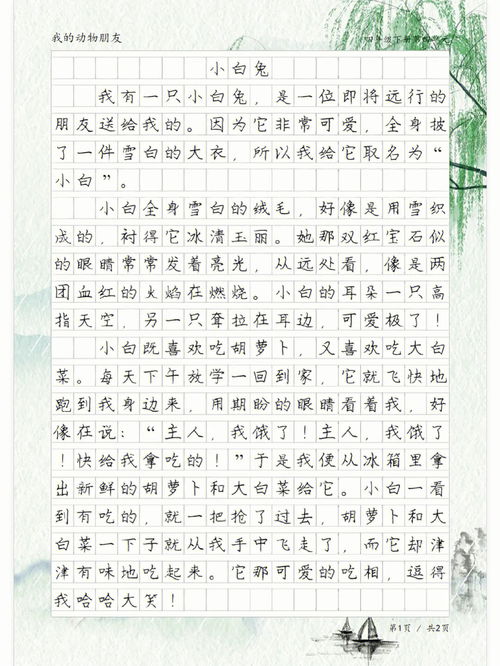 我的动物朋友
四年级下册第四单元
小白兔
我有一只小白兔，是一位即将远行的
朋友送给我的。因为它非常可爱，全身披
了一件雪白的大衣，所以我给它取名为“
小白”。
小白全身雪白的绒毛，好像是用雪织
成的，衬得它冰清玉丽。她那双红宝石似
的眼睛常常发着亮光，从远处看，像是两
团血红的火焰在燃烧。小白的耳朵一只高
指天空，另一只耷拉在耳边，可爱极了！
小白既喜欢吃胡萝卜，又喜欢吃大白
菜。每天下午放学一回到家，它就飞快地
跑到我身边来，用期盼的眼睛看着我，好
像在说：“主人，我饿了！主人，我饿了
！快给我拿吃的！”于是我便从冰箱里拿
出新鲜的胡萝卜和大白菜给它。小白一看
到有吃的，就一把抢了过去，胡萝卜和大
白菜一下子就从我手中飞走了，而它却津
津有味地吃起来。它那可爱的吃相，逗得
我哈哈大笑！
第1页 / 共2页